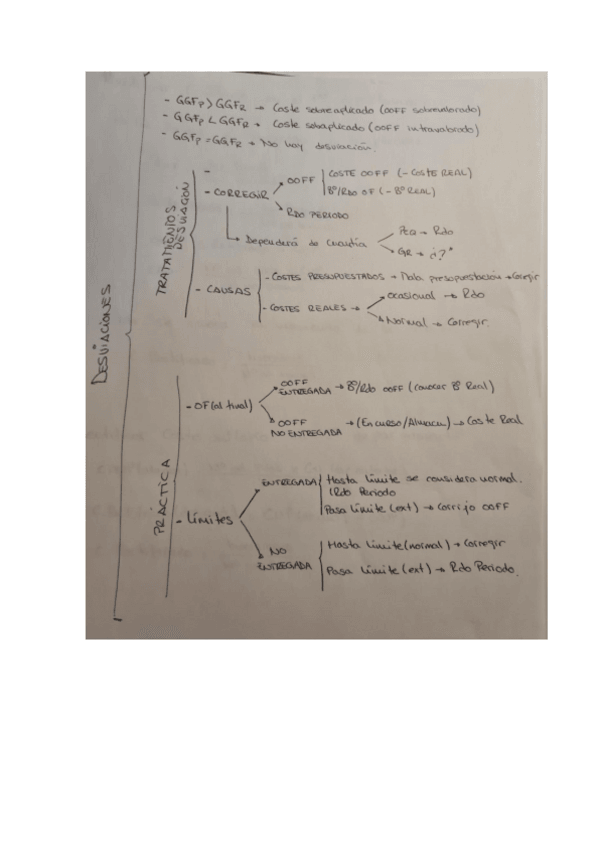 - GGFp > GGFR → Coste sobreaplicado (OOFF sobrevalorado)
- GGFp < GGFR → Coste subaplicado (OOFF infravalorado)
- GGFp = GGFR → No hay desviación.
DESVIACIONES
TRATAMIENTOS DESVIACIÓN
-
- CORREGIR
OOFF
COSTE OOFF (→ COSTE REAL)
Bº/RDO OF (→ Bº REAL)
RDO PERIODO
Dependerá de Cuantía
PEQ → Rdo
GR → ¿?*
- CAUSAS
- COSTES PRESUPUESTADOS → Mala presupuestación → Corregir
- COSTES REALES →
Ocasional → Rdo
Normal → Corregir.
PRÁCTICA
- OF (al final)
OOFF ENTREGADA → Bº/Rdo OOFF (Conocer Bº Real)
OOFF NO ENTREGADA → (En curso/Almacen) → Coste Real
- Límites
ENTREGADA
Hasta límite se considera normal.
(Rdo Periodo
Pasa límite (ext) → Corrijo OOFF
NO ENTREGADA
Hasta límite (normal) → Corregir
Pasa límite (ext) → Rdo Periodo.